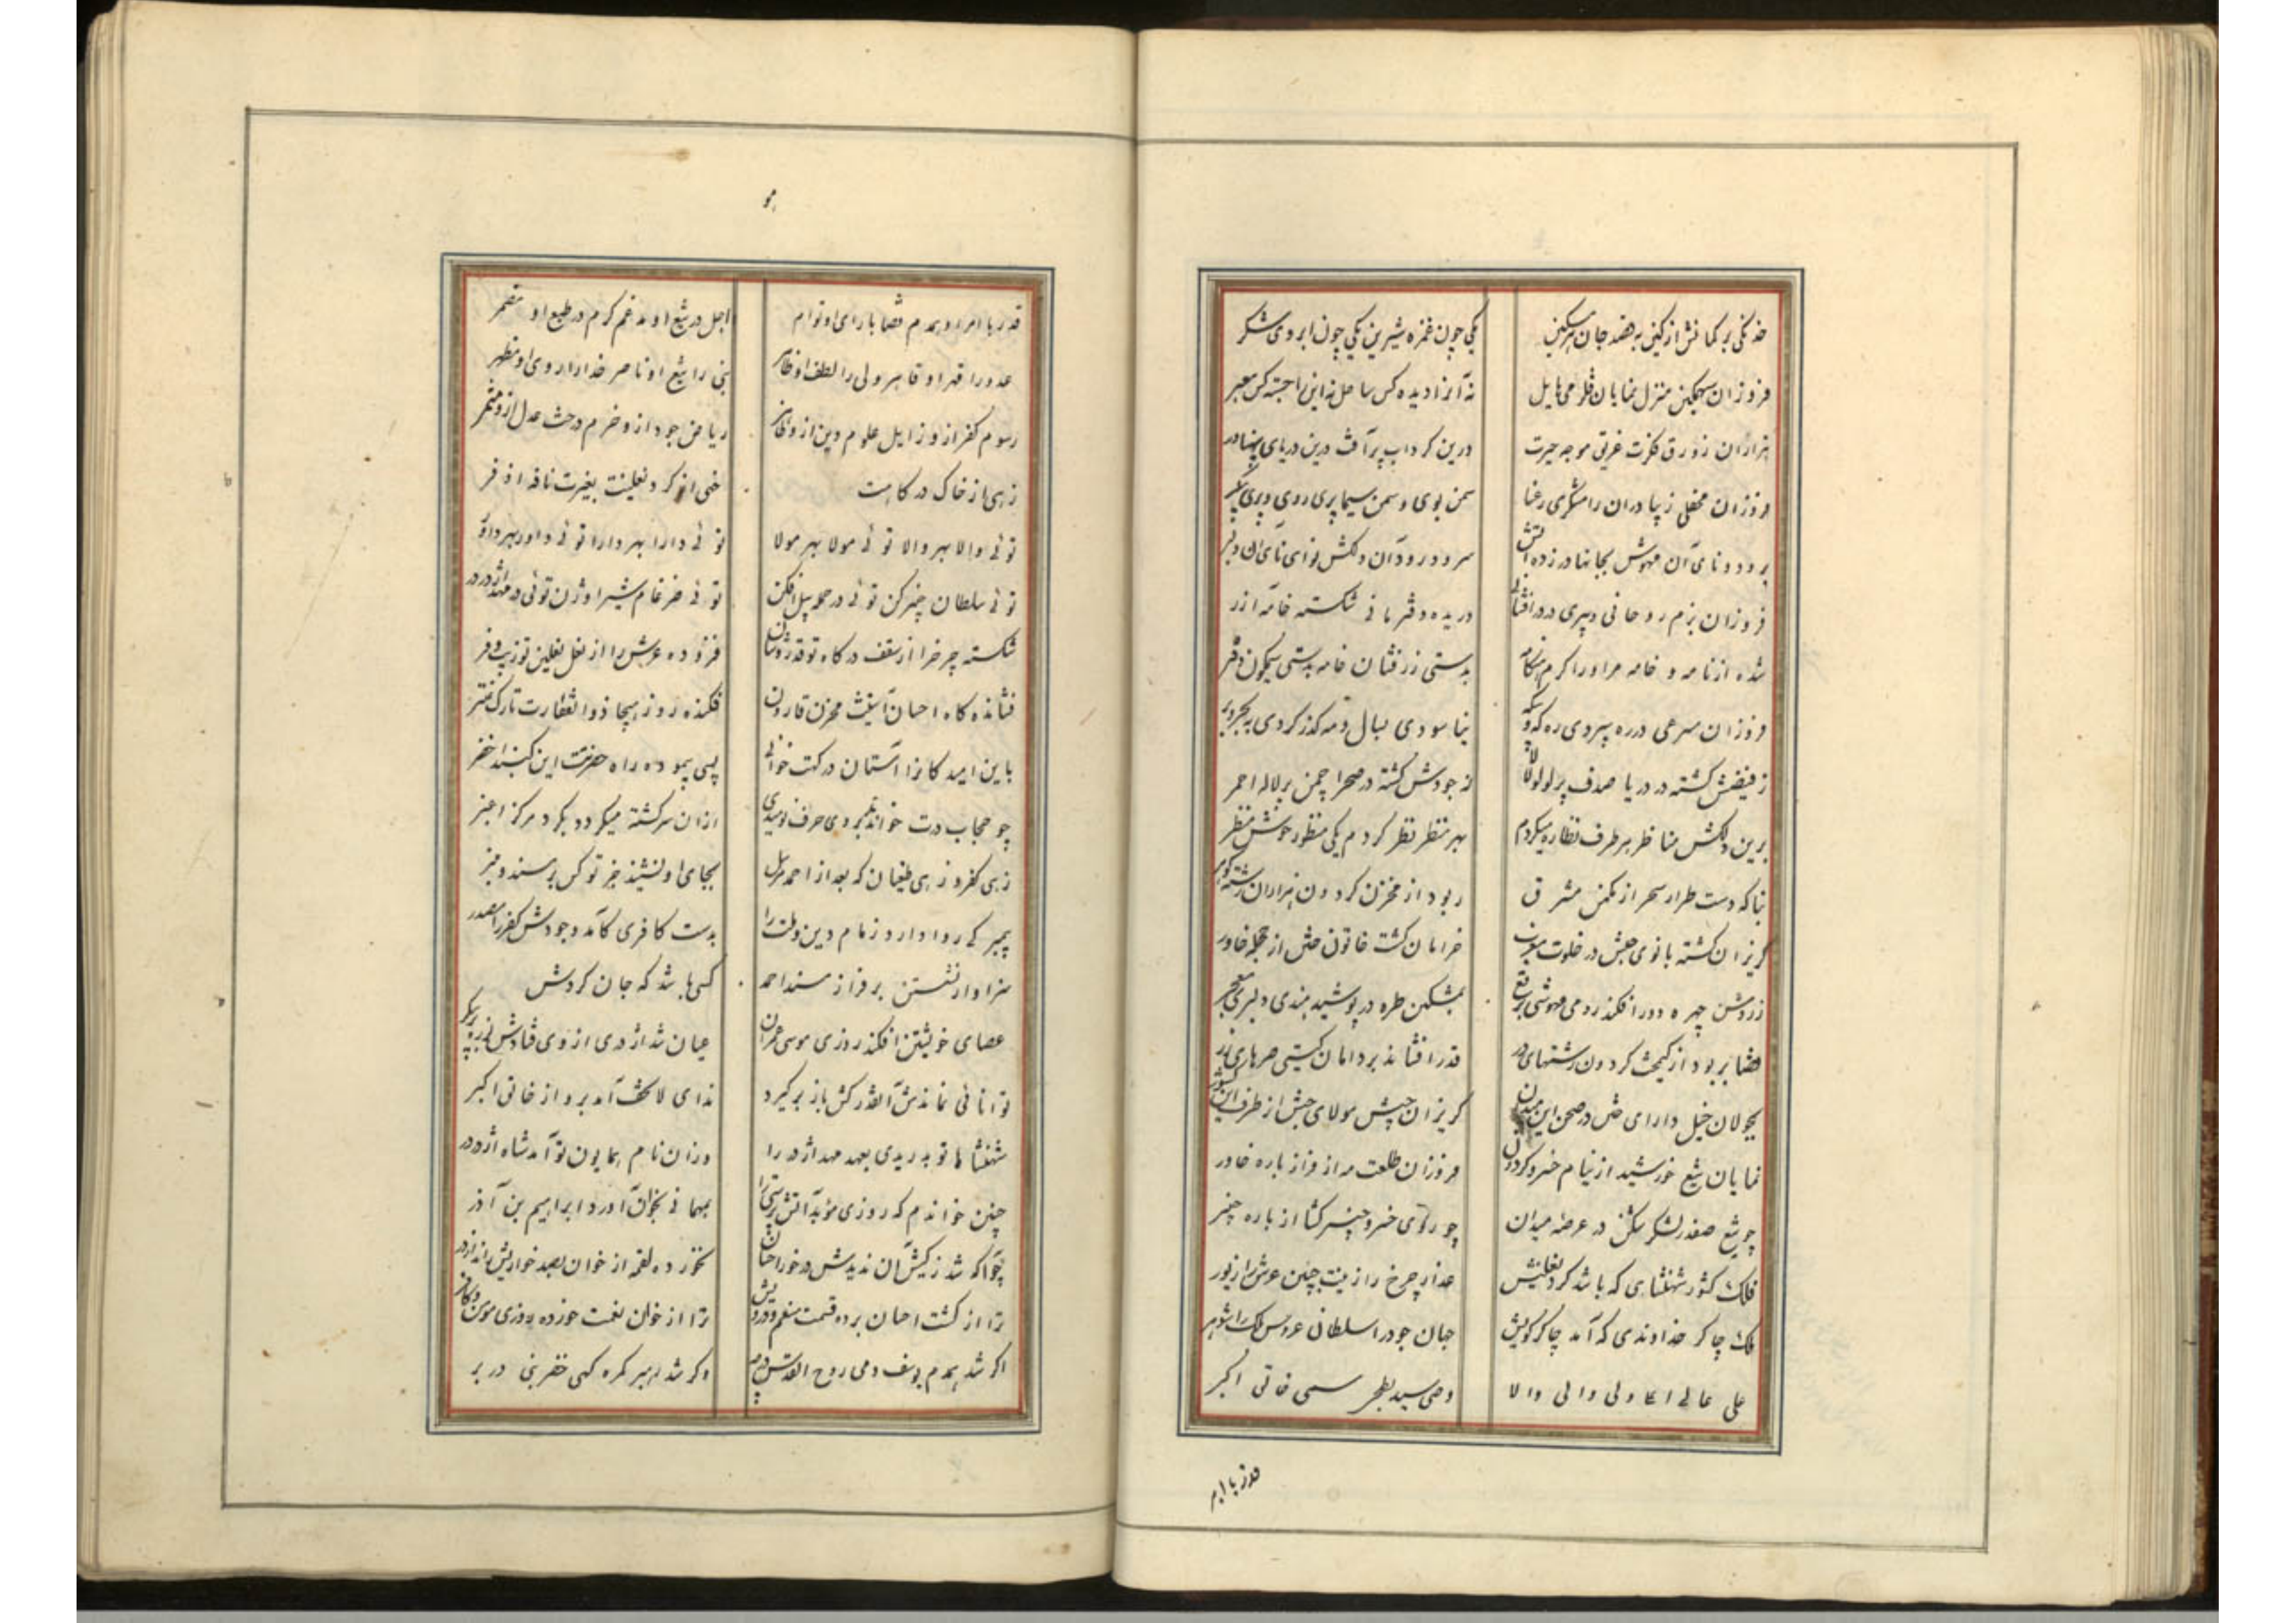 خدنگی بر کمانش از کین به قصد جان هر مسکین
یکی چون غمزه شیرین یکی چون ابروی شکر
فروزان سهمگین منزل نمایان قلزمی هایل
نه آنرا دیده کس ساحل نه این را جسته کس معبر
هزاران زورق فکرت غریق موجه حیرت
درین کرداب پر آفت درین دریای پهناور
فروزان محفلی زیبا دران رامشکری رعنا
سمن بوی و سمن سیما پری روی و پری پیکر
برود و نای آن مهوش بجانها در زده آتش
سرود رود آن دلکش نوای نای آن دلبر
فروزان بزم روحانی دبیری در
دریده دفتر مانی شکسته خامه آزر
شده از نامه و خامه مر او را کرم هنکامه
بدستی زرفشان خامه بدستی سیمکون دفتر
فروزان سرعی در ره
نیاسودی بسال و مه کذر کردی به بحر و بر
ز فیضش کشته در دریا صدف پر لولو لالا
ز جودش کشته در صحرا چمن پر لاله احمر
برین دلکش مناظر هر طرف نظاره میکردم
بهر منظر نظر کردم یکی منظور خوش منظر
بناکه دست طرار سحر از مکمن مشرق
ربود از مخزن کردون هزاران رشته کوهر
کریزان کشته بانوی حبش در خلوت مغرب
خرامان کشت خاتون ختن از حجله خاور
ز روشن چهره دور افکند رومی مهوشی برقع
بمشکین طره در پوشید هندی دلبری معجر
قضا بربود از کیمخت کردون رشتهای در
قدر افشاند بر دامان کیتی صرهای زر
بجولان خیل دارای ختن در صحن این میدان
کریزان جیش مولای حبش از طرف این کشور
نمایان تیغ خورشید از نیام خسرو کردون
فروزان طلعت مه از فراز باره خاور
چو تیغ صفدر لشکر شکن در عرصه میدان
چو رای خسرو خیبر کشا از باره خیبر
فلک کشور شهنشاهی که باشد کرد نعلینش
عذار چرخ را زینت جبین عرش را زیور
ملک چاکر خداوندی که آمد چاکر کویش
جهان جود را سلطانی عروس ملک را شوهر
علی عالی اعلا ولی والی والا
وصی سید بطحی سمی خالق اکبر
قدر با امر
قدر با امر او همدم قضا با رای او توام
اجل در تیغ او مدغم کرم در طبع او مضمر
عدو را قهر او قاهر ولی را لطف او ظاهر
نبی را تیغ او ناصر خدا را روی او مظهر
رسوم کفر از او زایل علوم دین از او ظاهر
ریاض جود از او خرم درخت عدل از او مثمر
زهی از خاک درکاهت
خهی از کرد نعلینت بغیرت نافه اذفر
توئی والا بهر والا توئی مولا بهر مولا
توئی دارا بهر دارا توئی داور بهر داور
توئی سلطان خیبر کن توئی در حمله پیل افکن
توئی ضرغام شیر اوژن توئی در مهد اژدر در
شکسته چرخ را از سقف درکاه تو قدر و شان
فزوده عرش را از نعل نعلین تو زیب و فر
فشانده کاه احسان آستینت مخزن قارون
فکنده روز هیجا ذوالفقارت تارک عنتر
باین امید کانرا آستان درکت خوانی
پی پیموده راه حضرتت این کنبد اخضر
چو حجاب درت خواندش بروی حرف نومیدی
ازان سرکشته میکردد بکرد مرکز اغبر
زهی کفر و زهی طغیان که بعد از احمد مرسل
بجای او نشیند جز تو کس بر مسند و منبر
پیمبر کی روا دارد زمام دین و ملت را
بدست کافری کآمد وجودش کفر را مصدر
سزاوار نشستن بر فراز مسند احمد
کسی باشد که جان کردش
عصای خویشتن افکند روزی موسی عمران
عیان شد اژدری از وی فتادش لرزه بر پیکر
توانائی نماندش آنقدر کش باز بر کیرد
ندای لا تخف آمد برو از خالق اکبر
شهنشاها تو بدریدی بعهد مهد اژدر را
وزان نام همایون تو آمد شاه اژدر در
چنین خواندم که روزی موبد آتش پرستی را
بمهمانی بخوان آورد ابراهیم بن آذر
چو آکه شد ز کیش آن ندیدش در خور احسان
نخورده لقمه از خوان بصد خواریش راند از در
ترا از کشت احسان برده قسمت منعم و درویش
ترا از خوان نعمت خورده روزی مومن و کافر
اکر شد همدم یوسف دمی روح القدس در چه
وکر شد رهبر کمره کهی خضر نبی در بر